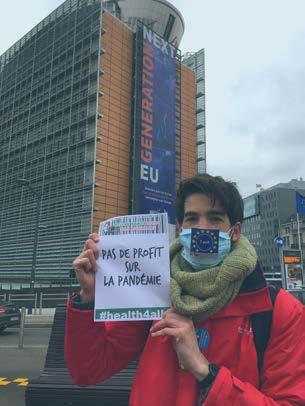 NEXT
GENERATION
EU
PAS DE PROFIT
SUR
LA PANDÉMIE
#health4all